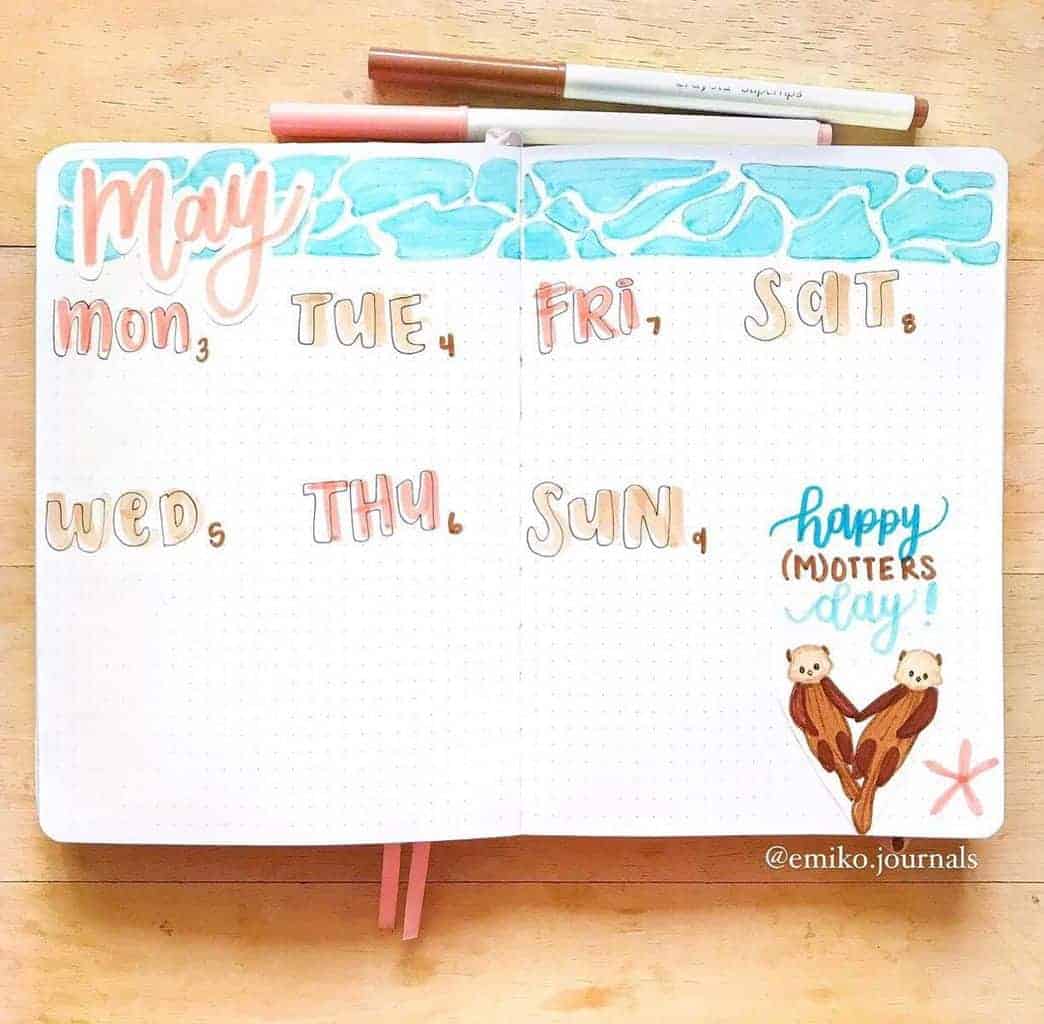 Crayola Supertips
May
Mon 3
TUE 4
FRi 7
SaT 8
WeD 5
THu 6
SuN 9
happy
(M)OTTERS
day!
@emiko.journals